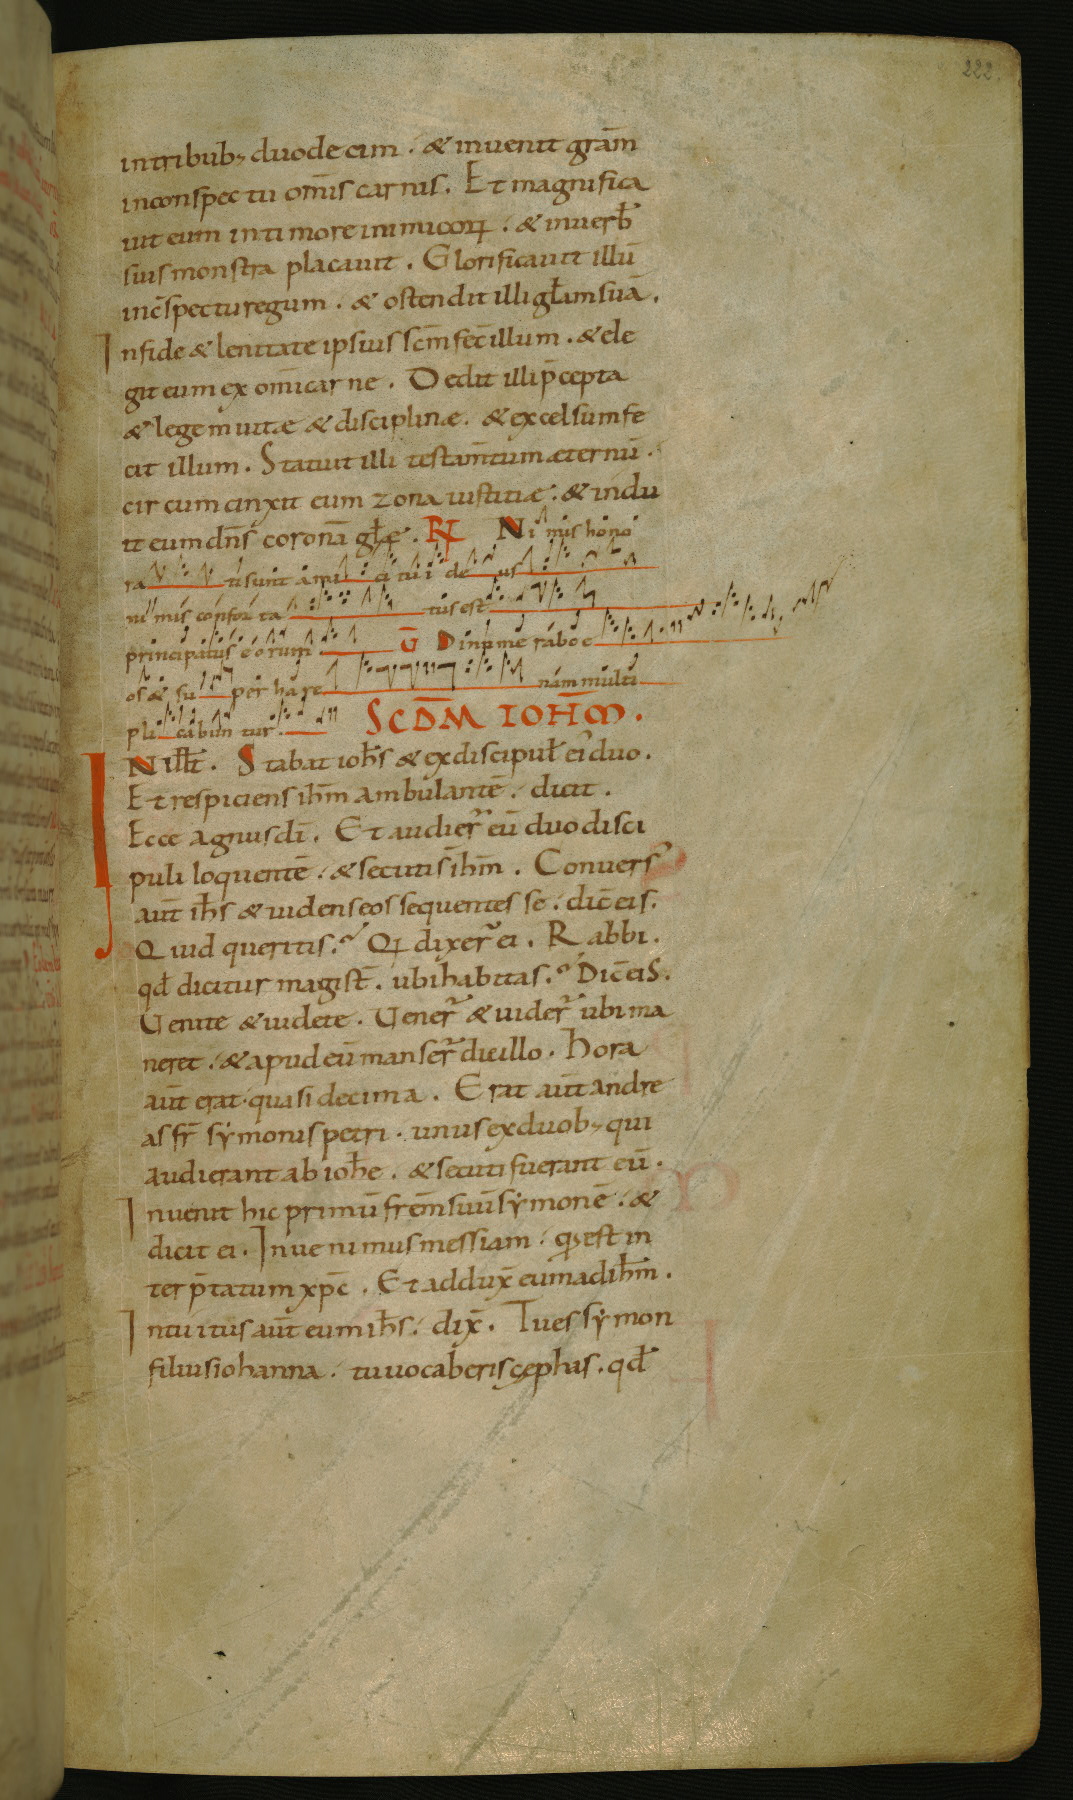 222.
intribub; duodecim. & inuenit gra̅m
inconspectu om̅is carnis. Et magnifica
uit eum intimore inimicoꝝ. & inuerb̅
suis monstra placauit. Glorificauit illu̅
inc̅spectu regum. & ostendit illi gl̅am sua̅.
Infide & lenitate ipsius sc̅m fec̅ illum. & ele
git eum ex om̅i carne. Dedit illi p̅cepta
& legem uitæ & disciplinæ. & excelsum fe
cit illum. Statuit illi testam̅tum æternu̅.
circumcinxit eum zona iustitiæ. & indu
it eum dn̅s corona̅ gl̅æ. R̸ Nimis hono
ra ti sunt ami ci tui deus
nimis confor ta tus est
principatus eorum V̅ Dinumerabo e
os & super hare nam multi
plicabuntur. SCD̅M IOH̅M.
IN ill̅t. Stabat ioh̅s & exdiscipul̅ ei' duo.
Et respiciens ih̅m ambulante̅. dicit.
Ecce agnus di̅. Et audier̅ eu̅ duo disci
puli loquente̅. & secuti s̅ ih̅m. Conuers'
aut̅ ih̅s & uidens eos sequentes se. dic̅ eis.
Quid queritis. Qi dixer̅ ei. Rabbi.
qd̅ dicitur magist̅. ubi habitas. Dic̅ eis.
Uenite & uidete. Uener̅ & uider̅ ubi ma
neret. & apud eu̅ manser̅ die illo. Hora
aut̅ erat quasi decima. Erat aut̅ andre
as fr̅ sẏmonis petri. unus exduob; qui
audierant ab ioh̅e. & secuti fuerant eu̅.
Inuenit hic primu̅ fr̅em suu̅ sẏmone̅. &
dicit ei. Inuenimus messiam. qđ est in
terp̅tatum xp̅c. Et addux̅ eum ad ih̅m.
Intuitus aut̅ eum ih̅s. dix̅. Tu es sẏmon
filius iohanna. tu uocaberis cephas. qd̅